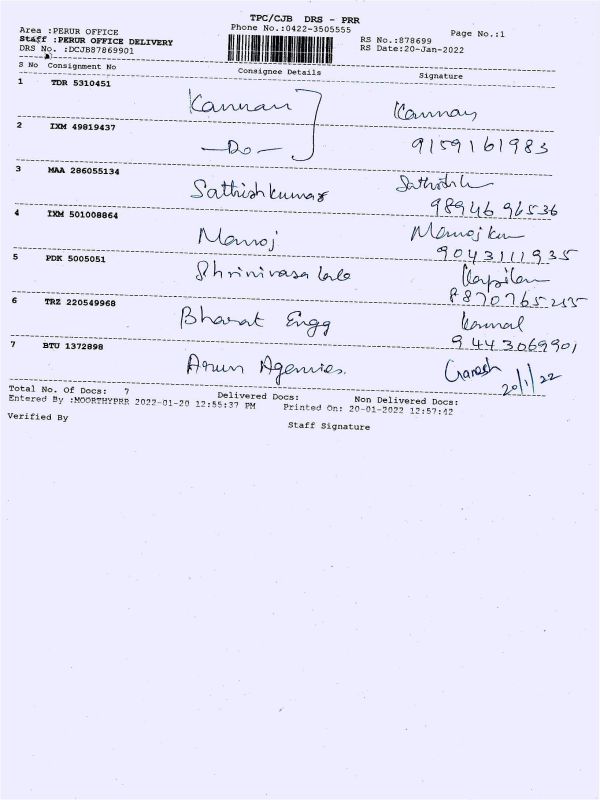 TPC/CJB DRS - PRR
Area :PERUR OFFICE Phone No.:0422-3505555 Page No.:1
Staff :PERUR OFFICE DELIVERY RS No.:878699
DRS No. :DCJB87869901 RS Date:20-Jan-2022
S No Consignment No Consignee Details Signature
1 TDR 5310451 Kannan Kannan
2 IXM 49819437 —Do— 9159161983
3 MAA 286055134 Sathishkumar
9894696536
4 IXM 501008864 Manoj Manoj
9043111935
5 PDK 5005051 Shrinivasa Kapilan
8870765255
6 TRZ 220549968 Bharat Engg
9443069901
7 BTU 1372898 Arun Agencies. Ganesh
20/1/22
Total No. Of Docs: 7 Delivered Docs: Non Delivered Docs:
Entered By :MOORTHYPRR 2022-01-20 12:55:37 PM Printed On: 20-01-2022 12:57:42
Verified By Staff Signature